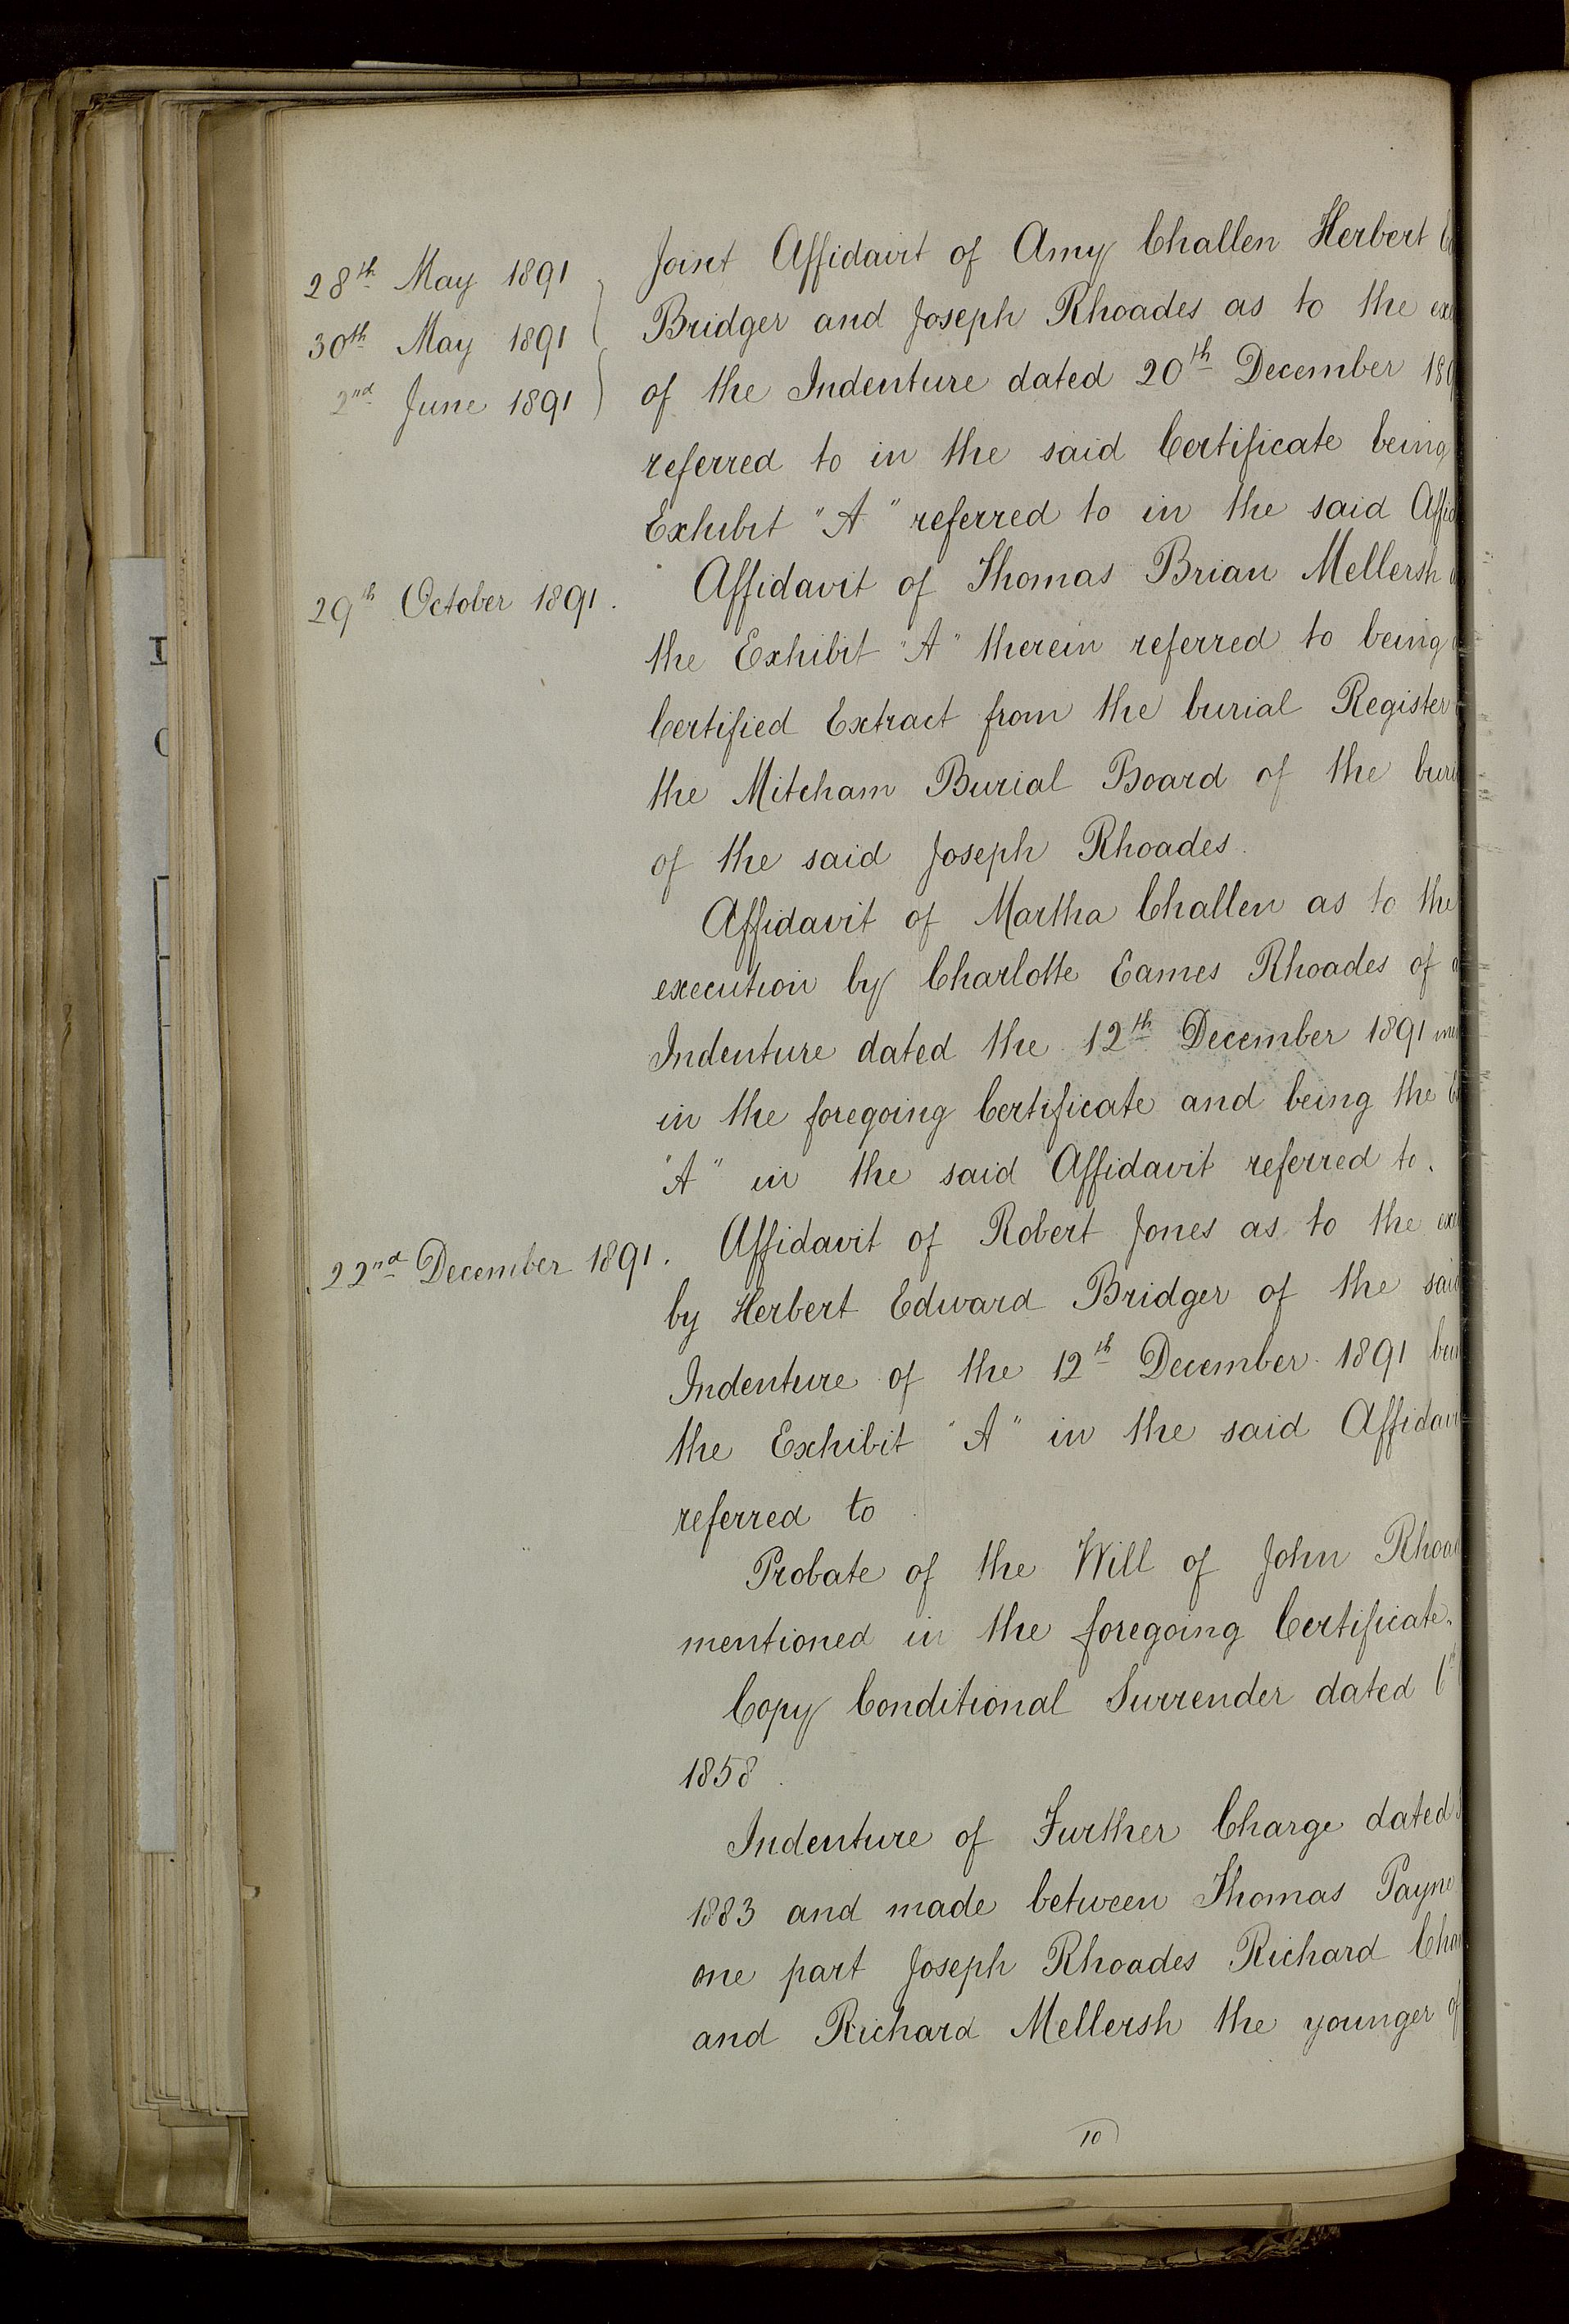 28th May 1891
30th May 1891
2nd June 1891
Joint Affidavit of Amy Challen Herbert
Bridger and Joseph Rhoades as to the
of the Indenture dated 20th December
referred to in the said Certificate being
Exhibit "A" referred to in the said
29th October 1891.
Affidavit of Thomas Brian Mellersh
the Exhibit "A" therein referred to being
Certified Extract from the burial Register
the Mitcham Burial Board of the
of the said Joseph Rhoades.
Affidavit of Martha Challen as to the
execution by Charlotte Eames Rhoades of
Indenture dated the 12th December 1891
in the foregoing Certificate and being the
"A" in the said Affidavit referred to.
22nd December 1891.
Affidavit of Robert Jones as to the
by Herbert Edward Bridger of the said
Indenture of the 12th December 1891
the Exhibit "A" in the said
referred to
Probate of the Will of John
mentioned in the foregoing Certificate.
Copy Conditional Surrender dated
1858.
Indenture of Further Charge dated
1883 and made between Thomas Payne
one part Joseph Rhoades Richard
and Richard Mellersh the younger of
10